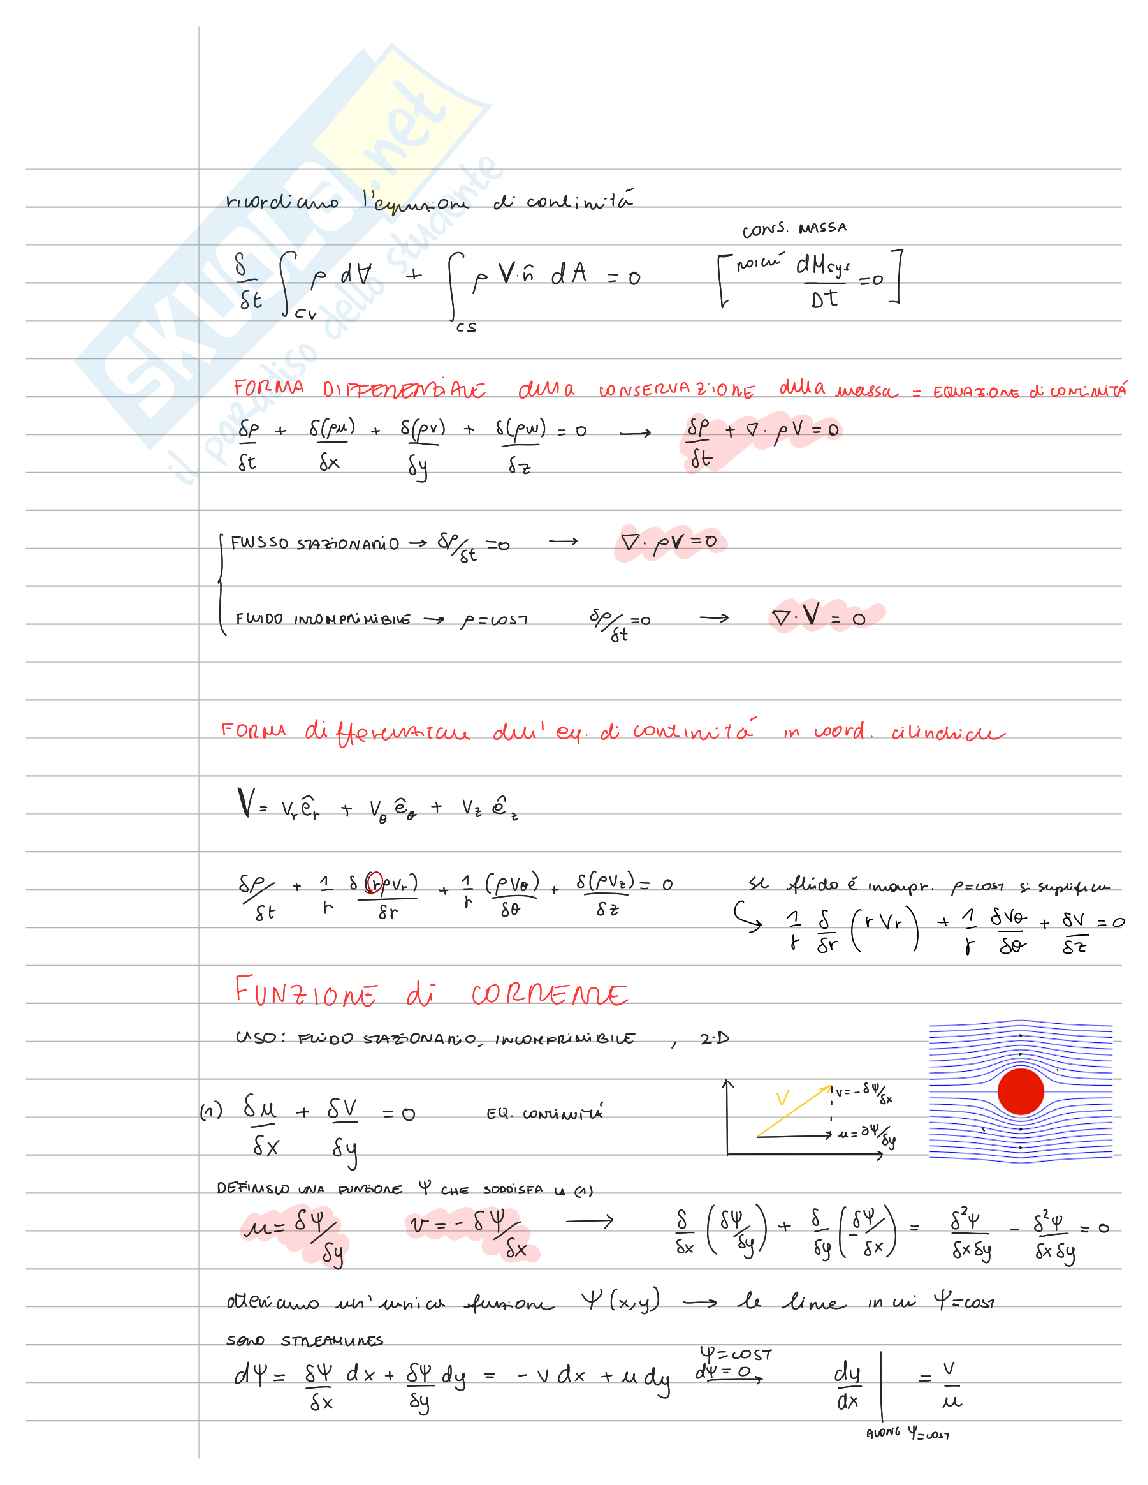 SKUOLA.net
il paradiso dello studente
ricordiamo l'equazione di continuità
CONS. MASSA
δ/δt ∫CV ρ dV + ∫CS ρ V n̂ dA = 0 [poiché dMsys/Dt = 0]
FORMA DIFFERENZIALE della CONSERVAZIONE della massa = EQUAZIONE di CONTINUITÀ
δρ/δt + δ(ρu)/δx + δ(ρv)/δy + δ(ρw)/δz = 0 → δρ/δt + ∇· ρV = 0
FLUSSO STAZIONARIO → δρ/δt = 0 → ∇· ρV = 0
FLUIDO INCOMPRIMIBILE → ρ = COST δρ/δt = 0 → ∇· V = 0
FORMA differenziale dell' eq. di continuità in coord. cilindriche
V = Vr êr + Vθ êθ + Vz êz
δρ/δt + 1/r δ(rρVr)/δr + 1/r (ρVθ)/δθ + δ(ρVz)/δz = 0 se fluido è incompr. ρ=cost si semplifica
↪ 1/r δ/δr (r Vr) + 1/r δVθ/δθ + δV/δz = 0
FUNZIONE di CORRENTE
USO: FLUIDO STAZIONARIO, INCOMPRIMIBILE , 2-D
(1) δu/δx + δV/δy = 0 EQ. CONTINUITÁ
V
v = - δΨ/δx
u = ∂Ψ/δy
DEFINISCO UNA FUNZIONE Ψ CHE SODDISFA LA (1)
u = δΨ/δy v = - δΨ/δx → δ/δx (δΨ/δy) + δ/δy (- δΨ/δx) = δ²Ψ/δxδy - δ²Ψ/δxδy = 0
otteniamo un' unica funzione Ψ(x,y) → le linee in cui Ψ=cost
SONO STREAMLINES
dΨ = δΨ/δx dx + δΨ/δy dy = - v dx + u dy Ψ=COST dΨ=0 → dy/dx | = v/u
ALONG Ψ=cost